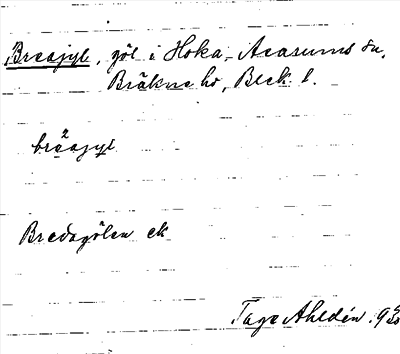 Breagyl, göl i Hoka, Asarums sn,
Bräkne hd, Blek. l.
bræ̀agyl
Bredagölen ek
Tage Ahldén. 9